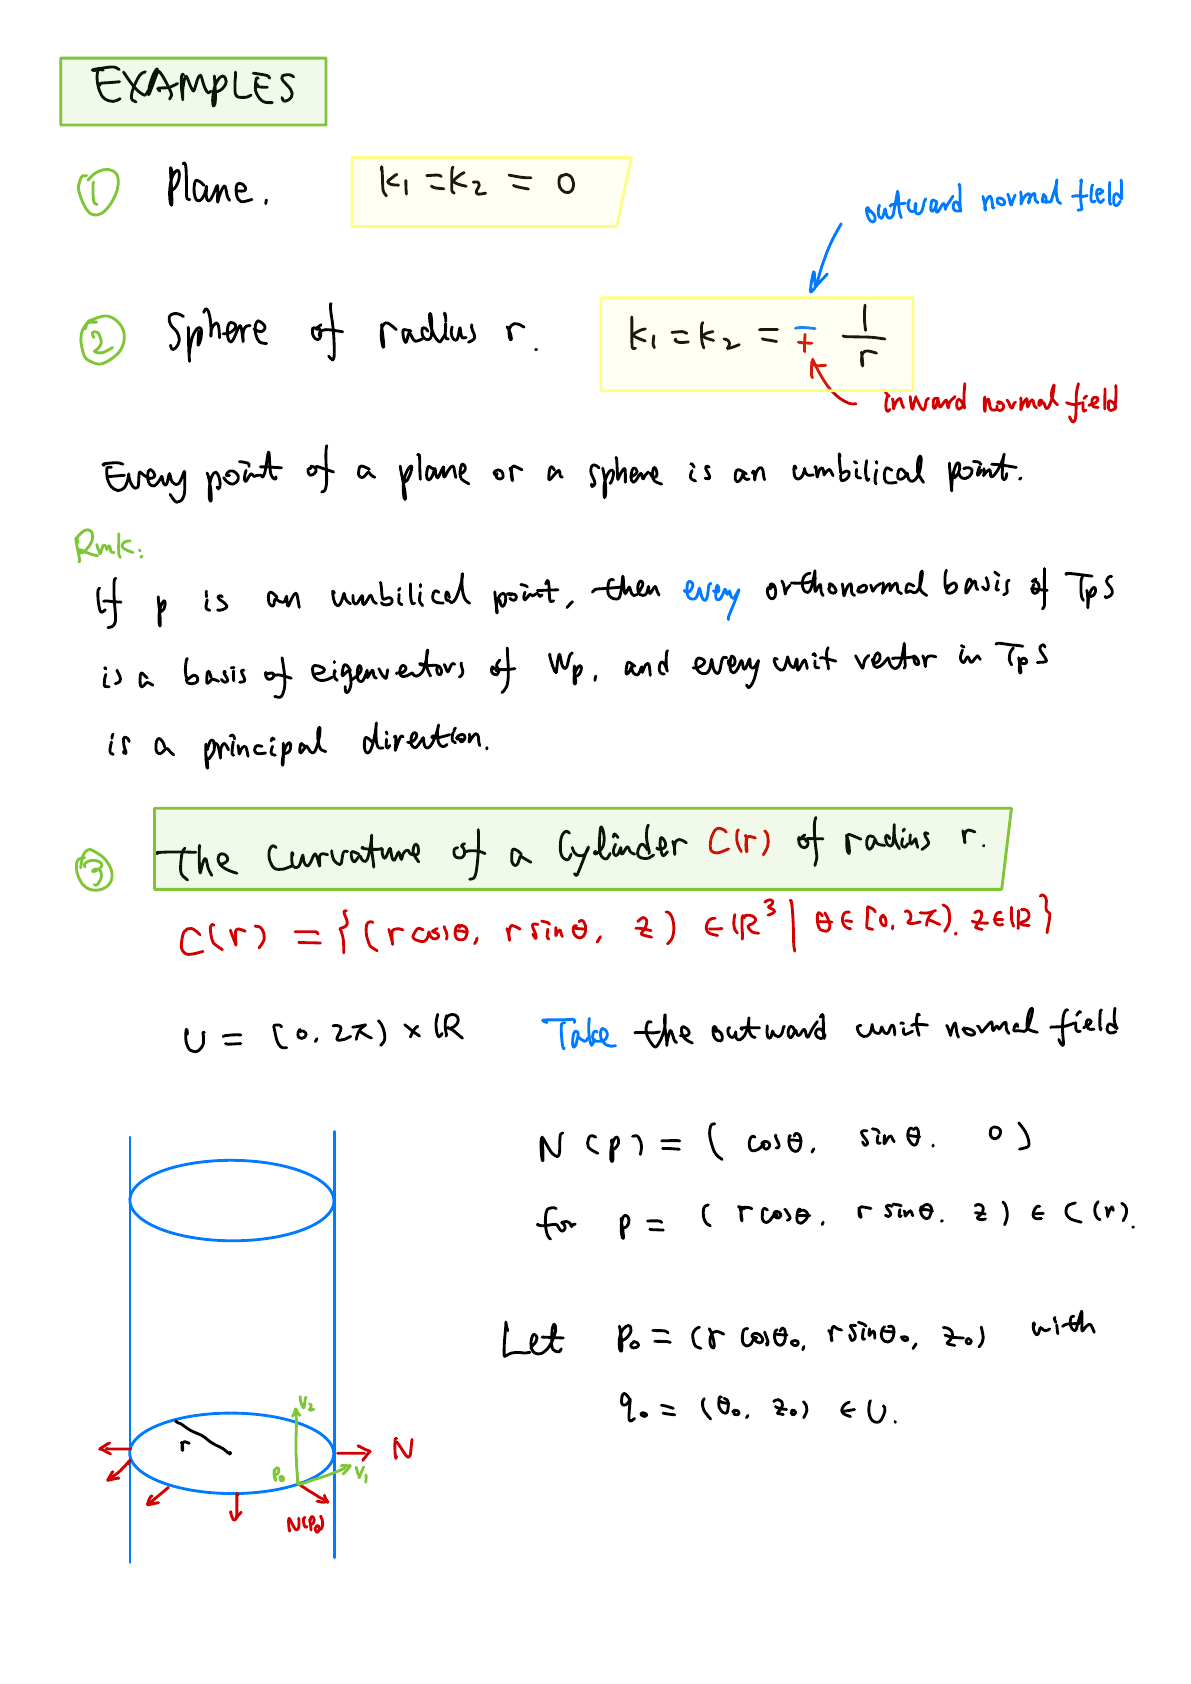 EXAMPLES
① Plane. k₁ = k₂ = 0
outward normal field
② Sphere of radius r. k₁ = k₂ = ∓ 1/r
inward normal field
Every point of a plane or a sphere is an umbilical point.
Rmk:
If p is an umbilical point, then every orthonormal basis of TpS
is a basis of eigenvectors of Wp, and every unit vector in TpS
is a principal direction.
③ The Curvature of a Cylinder C(r) of radius r.
C(r) = {(r cosθ, r sinθ, z) ∈ ℝ³ | θ ∈ [0, 2π), z ∈ ℝ}
U = [0, 2π) × ℝ Take the outward unit normal field
N(p) = (cosθ, sinθ, 0)
for p = (r cosθ, r sinθ, z) ∈ C(r).
Let p₀ = (r cosθ₀, r sinθ₀, z₀) with
q₀ = (θ₀, z₀) ∈ U.
V₂
r
N
p₀
V₁
N(p₀)